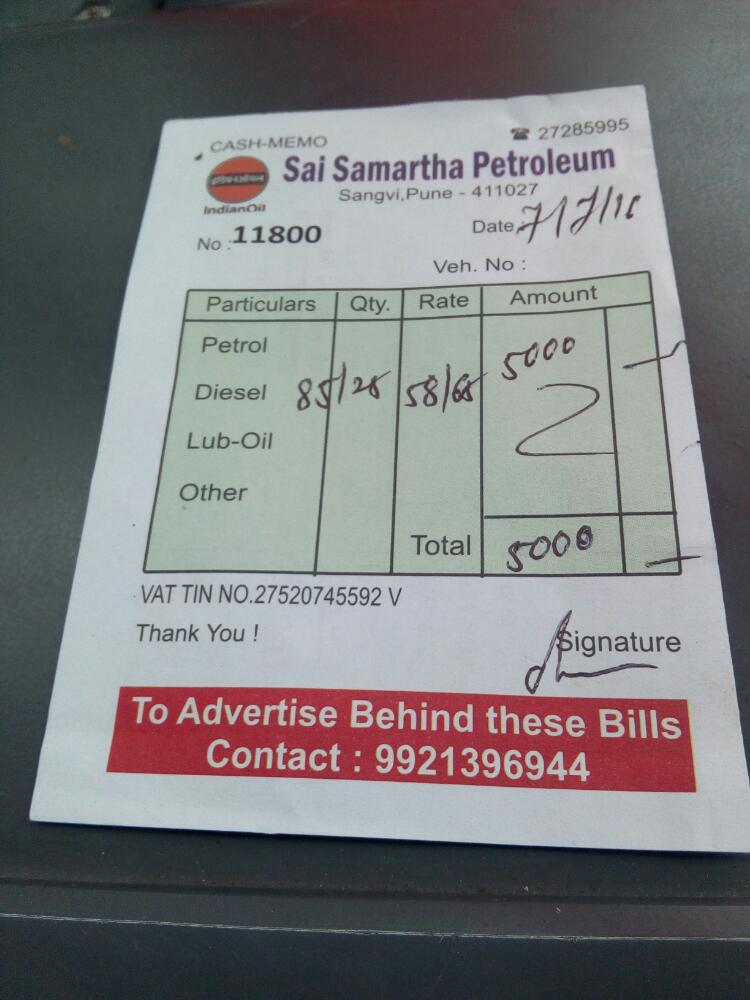 CASH-MEMO
☎ 27285995
Sai Samartha Petroleum
Sangvi,Pune - 411027
IndianOil
No : 11800
Date : 7/7/16
Veh. No :
Particulars Qty. Rate Amount
Petrol 5000
Diesel 85/25 58/65
Lub-Oil
Other
Total 5000
VAT TIN NO.27520745592 V
Thank You !
Signature
To Advertise Behind these Bills
Contact : 9921396944